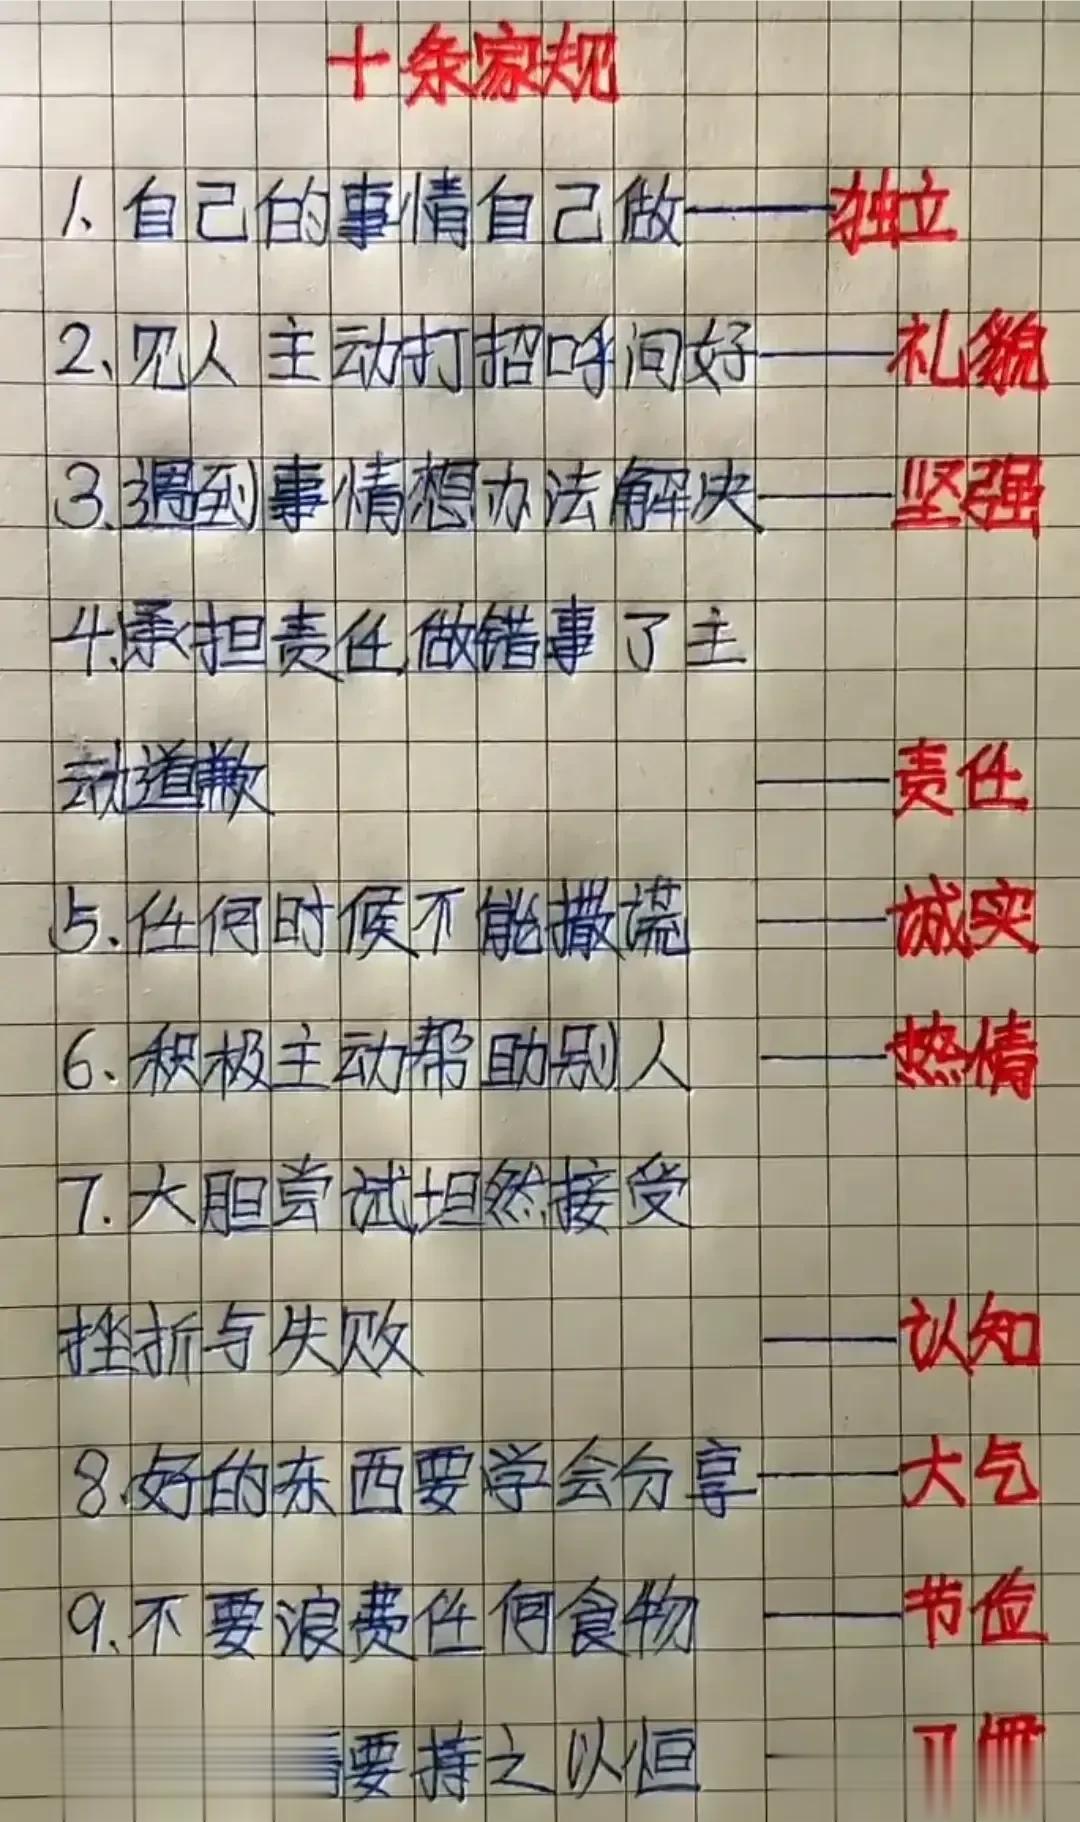 十条家规
1、自己的事情自己做——独立
2、见人主动打招呼问好——礼貌
3.遇到事情想办法解决——坚强
4.承担责任.做错事了主
动道歉——责任
5.任何时候不能撒谎——诚实
6、积极主动帮助别人——热情
7.大胆尝试坦然接受
挫折与失败——认知
8.好的东西要学会分享——大气
9.不要浪费任何食物——节俭
要持之以恒—